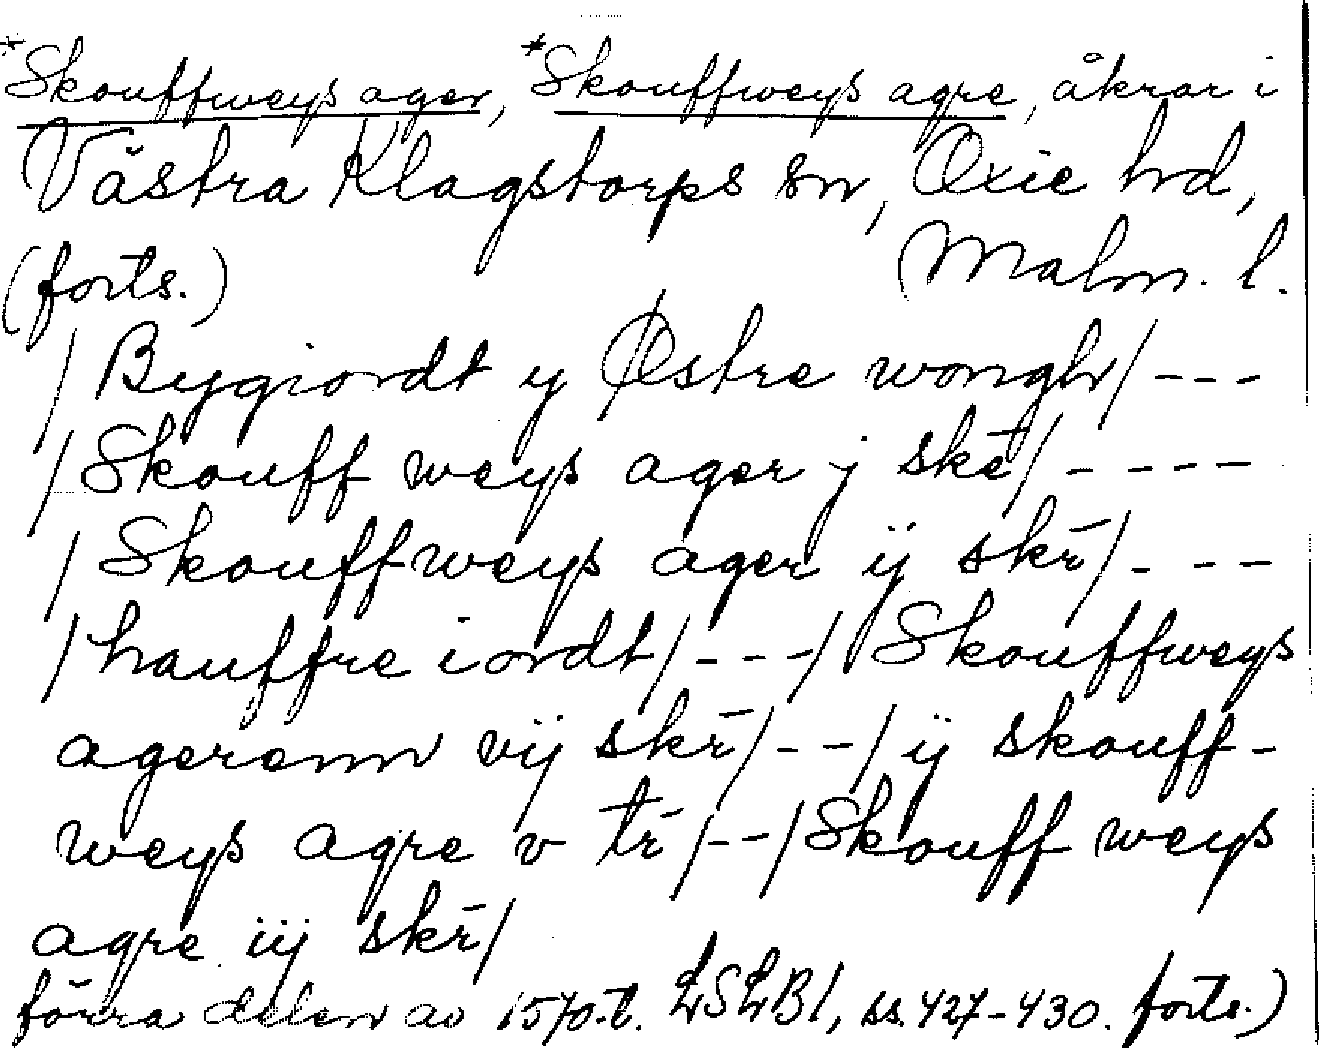 *Skouffweys ager, *Skouffweys agre, åkrar i
Västra Klagstorps sn, Oxie hrd,
(forts.) Malm. l.
/Bygiordt y Østre wongh/---
/Skouff weys ager j skē/----
/Skouffweys ager ij skr̄/---
/hauffre iordt/---/Skouffweys
agerenn vij skr̄/--/ij skouff-
weys agre v tr̄/--/Skouff weys
agre iij skr̄/
förra delen av 1570-t. LSLB1, ss. 427-430. forts.)